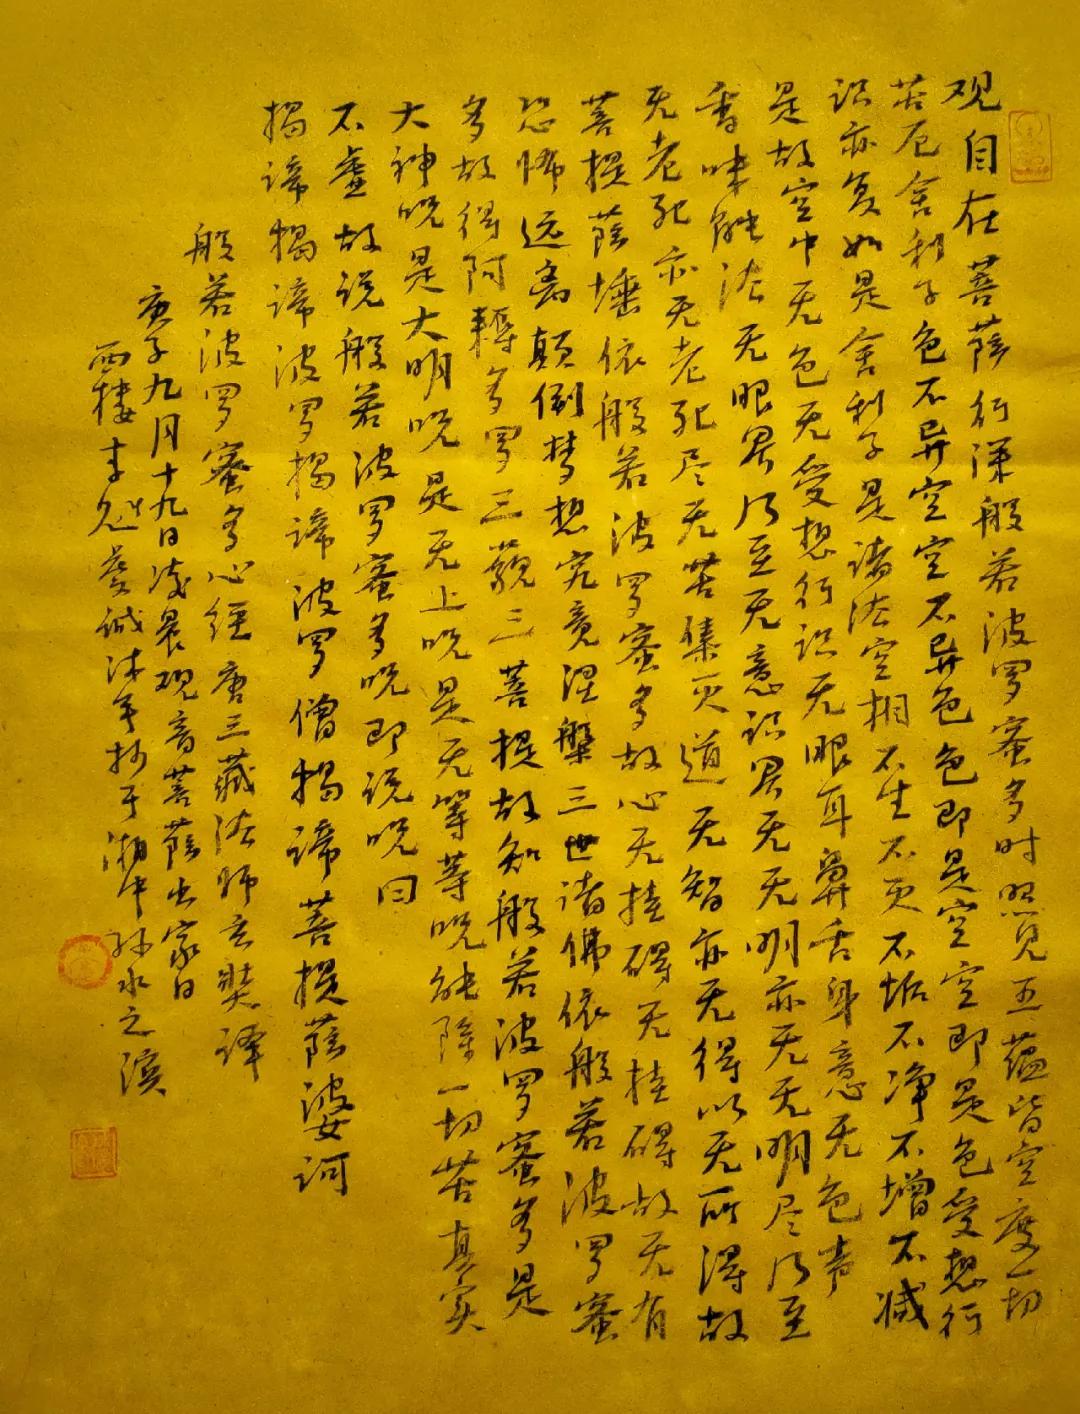 观自在菩萨行深般若波罗蜜多时照见五蕴皆空度一切
苦厄舍利子色不异空空不异色色即是空空即是色受想行
识亦复如是舍利子是诸法空相不生不灭不垢不净不增不减
是故空中无色无受想行识无眼耳鼻舌身意无色声
香味触法无眼界乃至无意识界无无明亦无无明尽乃至
无老死亦无老死尽无苦集灭道无智亦无得以无所得故
菩提萨埵依般若波罗蜜多故心无挂碍无挂碍故无有
恐怖远离颠倒梦想究竟涅槃三世诸佛依般若波罗蜜
多故得阿耨多罗三藐三菩提故知般若波罗蜜多是
大神呪是大明呪是无上呪是无等等呪能除一切苦真实
不虚故说般若波罗蜜多呪即说呪曰
揭谛揭谛波罗揭谛波罗僧揭谛菩提萨婆诃
般若波罗蜜多心经唐三藏法师玄奘译
庚子九月十九日凌晨观音菩萨出家日
西楼李虔诚沐手抄于湘中孙水之滨